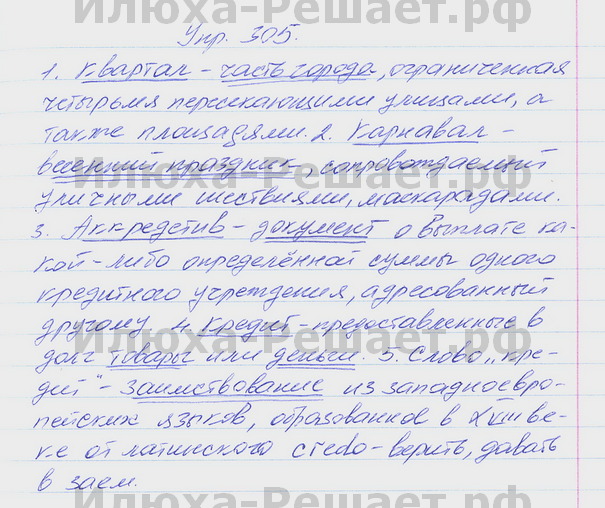 Илюха-Решает.рф
Упр. 305.
1. Квартал – часть города, ограниченная
четырьмя пересекающими улицами, а
также площадями. 2. Карнавал –
Илюха-Решает.рф
весенний праздник, сопровождаемый
уличными шествиями, маскарадами.
3. Аккредетив – документ о выплате ка-
кой-либо определённой суммы одного
кредитного учреждения, адресованный
другому. 4. Кредит – предоставленные в
Илюха-Решает.рф
долг товары или деньги. 5. Слово „кре-
дит" – заимствование из западноевро-
пейских языков, образованное в XVIII ве-
ке от латинского credo – верить, давать
в заем.
Илюха-Решает.рф